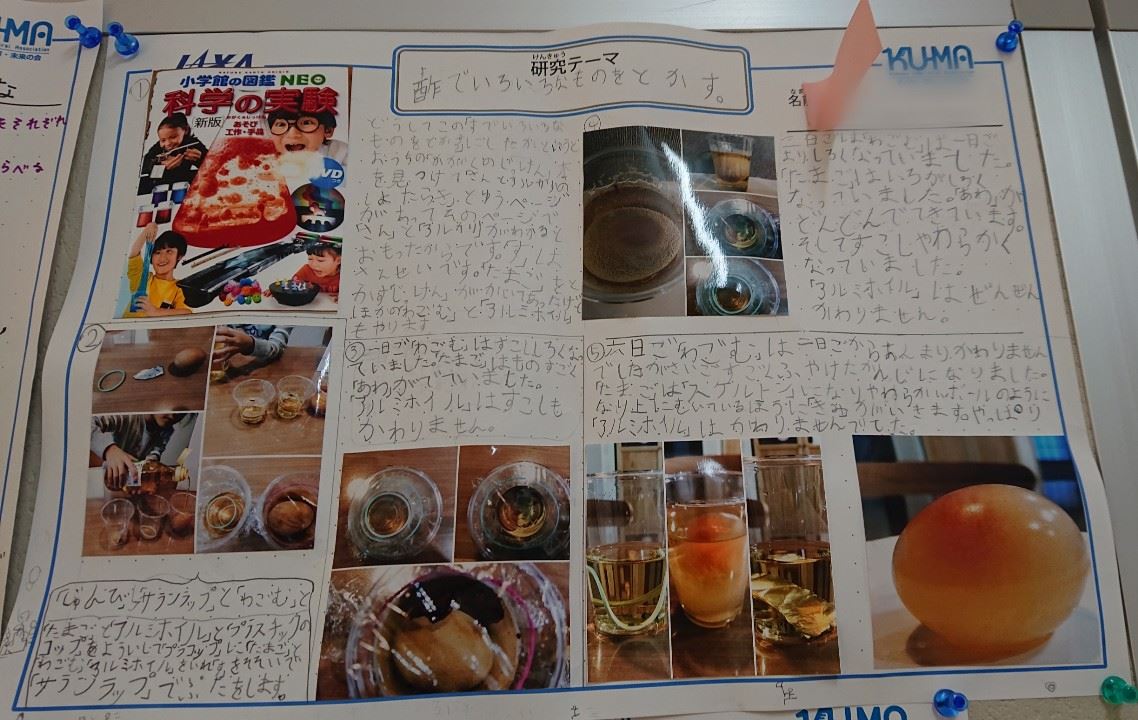 KUMA
研究テーマ
けんきゅう
酢でいろいろなものをとかす。
KU-MA
①
小学館の図鑑 NEO
科学の実験
新版
あそび
工作・手品
DVD
どうしてこの「すでいろいろな
ものをとかす」にしたかというと
おうちのかがくのじっけん本
を見つけて「さんとアルカリの
がわかると
おもったからです。「す」は
さんせいです。「たまご」をと
かすじっけんがかいてあったけど
ほかの「わごむ」と「アルミホイル」
もやります
②
「じゅんび」「サランラップ」と「わごむ」と
「たまご」と「アルミホイル」と「プラスチックの
コップ」をよういして「プラコップ」に「たまご」と
「わごむ」「アルミホイル」をいれ「す」をそそいで
「サランラップ」でふたをします。
③一日ご「わごむ」はすこししろくなっ
ていました。「たまご」はものすごく
「あわ」がでていました。
「アルミホイル」はすこしも
かわりません。
④
二日ご「わごむ」は一日ご
よりしろくなっていました。
「たまご」はいろがしろく
なっていました。「あわ」が
どんどんでてきています。
そしてすこしやわらかく
なっていました。
「アルミホイル」はぜんぜん
かわりません。
⑤六日ご「わごむ」は二日ごからあんまりかわりません
でしたがさいごすごくふやけたかんじになりました。
「たまご」は「スケルトン」になりやわらかいボールのように
なり上にむいているほうに「きみ」がいきます。やっぱり
「アルミホイル」はかわりませんでした。